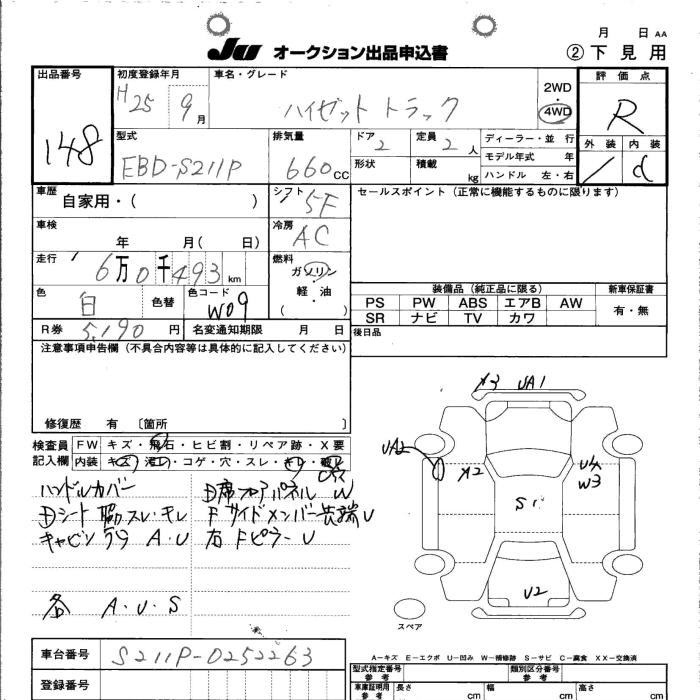 月 日 AA
JU オークション出品申込書
② 下見用
出品番号
148
初度登録年月
H25 9月
車名・グレード
ハイゼット トラック
2WD
・
4WD
評価点
R
外装 内装
/ d
型式
EBD-S211P
排気量
660cc
ドア 2
定員 2人
形状
積載 kg
ディーラー・並行
モデル年式 年
ハンドル 左・右
車歴
自家用・( )
シフト
5F
セールスポイント(正常に機能するものに限ります)
車検
年 月( 日)
冷房
AC
走行
6万0千493km
燃料
ガソリン
・
軽油
( )
色
白
色替
色コード
W09
装備品(純正品に限る)
新車保証書
PS PW ABS エアB AW
SR ナビ TV カワ
有・無
R券 5,190円
名変通知期限 月 日
後日品
注意事項申告欄(不具合内容等は具体的に記入してください)
修復歴 有 〔箇所 〕
検査員記入欄
FW キズ・飛石・ヒビ割・リペア跡・X要
内装 キズ・汚れ・コゲ・穴・スレ・キレ・破れ
ハンドルカバー
Dシート脇スレ・キレ
キャビンうら A.U
各 A.U.S
D席フロアパネル W
Fサイドメンバー先端U
右FピラーU
X3 UA1
UA2
A2
U4
W3
S1
U2
スペア
A-キズ E-エクボ U-凹み W-補修跡 S-サビ C-腐食 XX-交換済
車台番号
S211P-0252263
登録番号
型式指定番号
参考
類別区分番号
参考
車庫証明用
参考
長さ cm
幅 cm
高さ cm